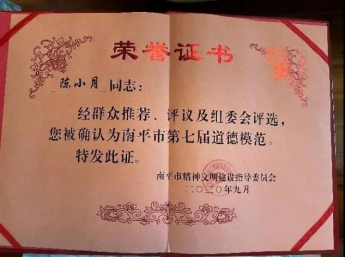 荣誉证书
陈小月 同志：
经群众推荐、评议及组委会评选，
您被确认为南平市第七届道德模范。
特发此证。
南平市精神文明建设指导委员会
二〇二〇年九月